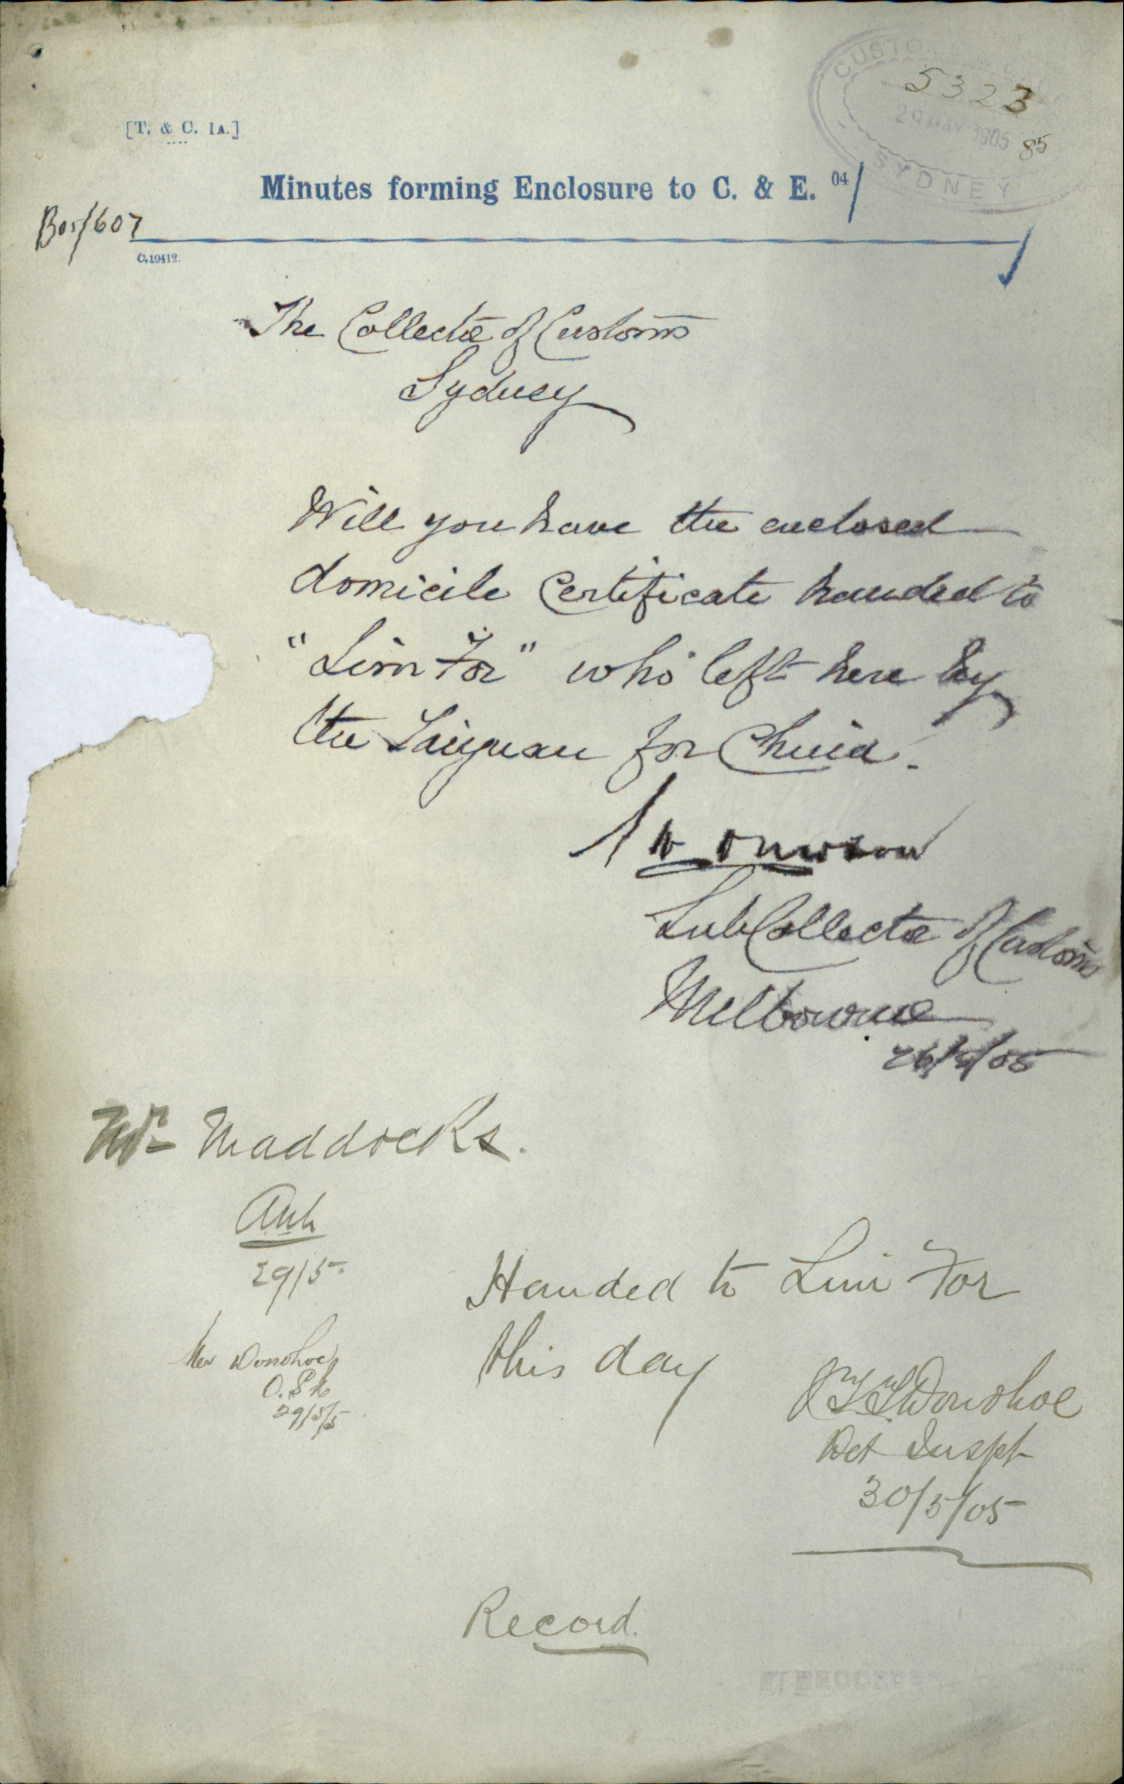 [T. & C. 1A.]
CUSTOMS
5323
29 MAY 1905 85
SYDNEY
Minutes forming Enclosure to C. & E. 04/
B05/607
C.19412.
The Collector of Customs
Sydney
Will you have the enclosed
domicile certificate handed to
"Lim For" who left here by
the Taiyuan for China.
Sub Collector of Customs
Melbourne
26/5/05
Mr Maddocks.
29/5
Handed to Lim For
this day
Mr Donohoe
29/5/5
Donohoe
Det Inspt
30/5/05
Record.